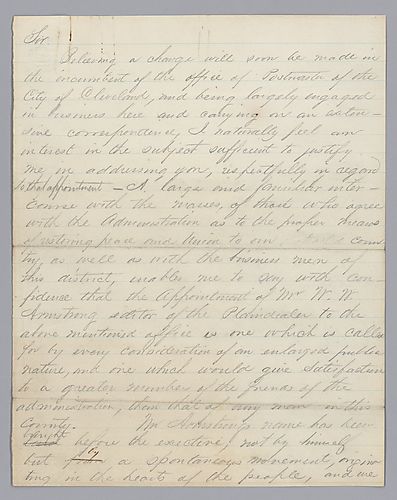 Sir
Believing a change will soon be made in
the incumbent of the office of Postmaster of the
City of Cleveland, and being largely engaged
in business here and carrying on an exten-
sive correspondence, I naturally feel an
interest in the subject sufficient to justify
me in addressing you, respectfully in regard
to that appointment - A large and familiar inter-
course with the masses, of those who agree
with the Administration as to the proper means
of restoring peace and Union to our coun
try, as well as with the business men of
this district, enables me to say with con
fidence that the Appointment of Mr W. W.
Armstrong editor of the Plaindealer to the
above mentioned office is one which is called
for by every consideration of an enlarged public
nature, and one which would give satisfaction
to a greater number of the friends of the
administration, than that of any man in this
County. Mr Armstrong's name has been
brought before the executive, not by himself
but by a spontaneous movement, origina
ting in the hearts of the people, and we